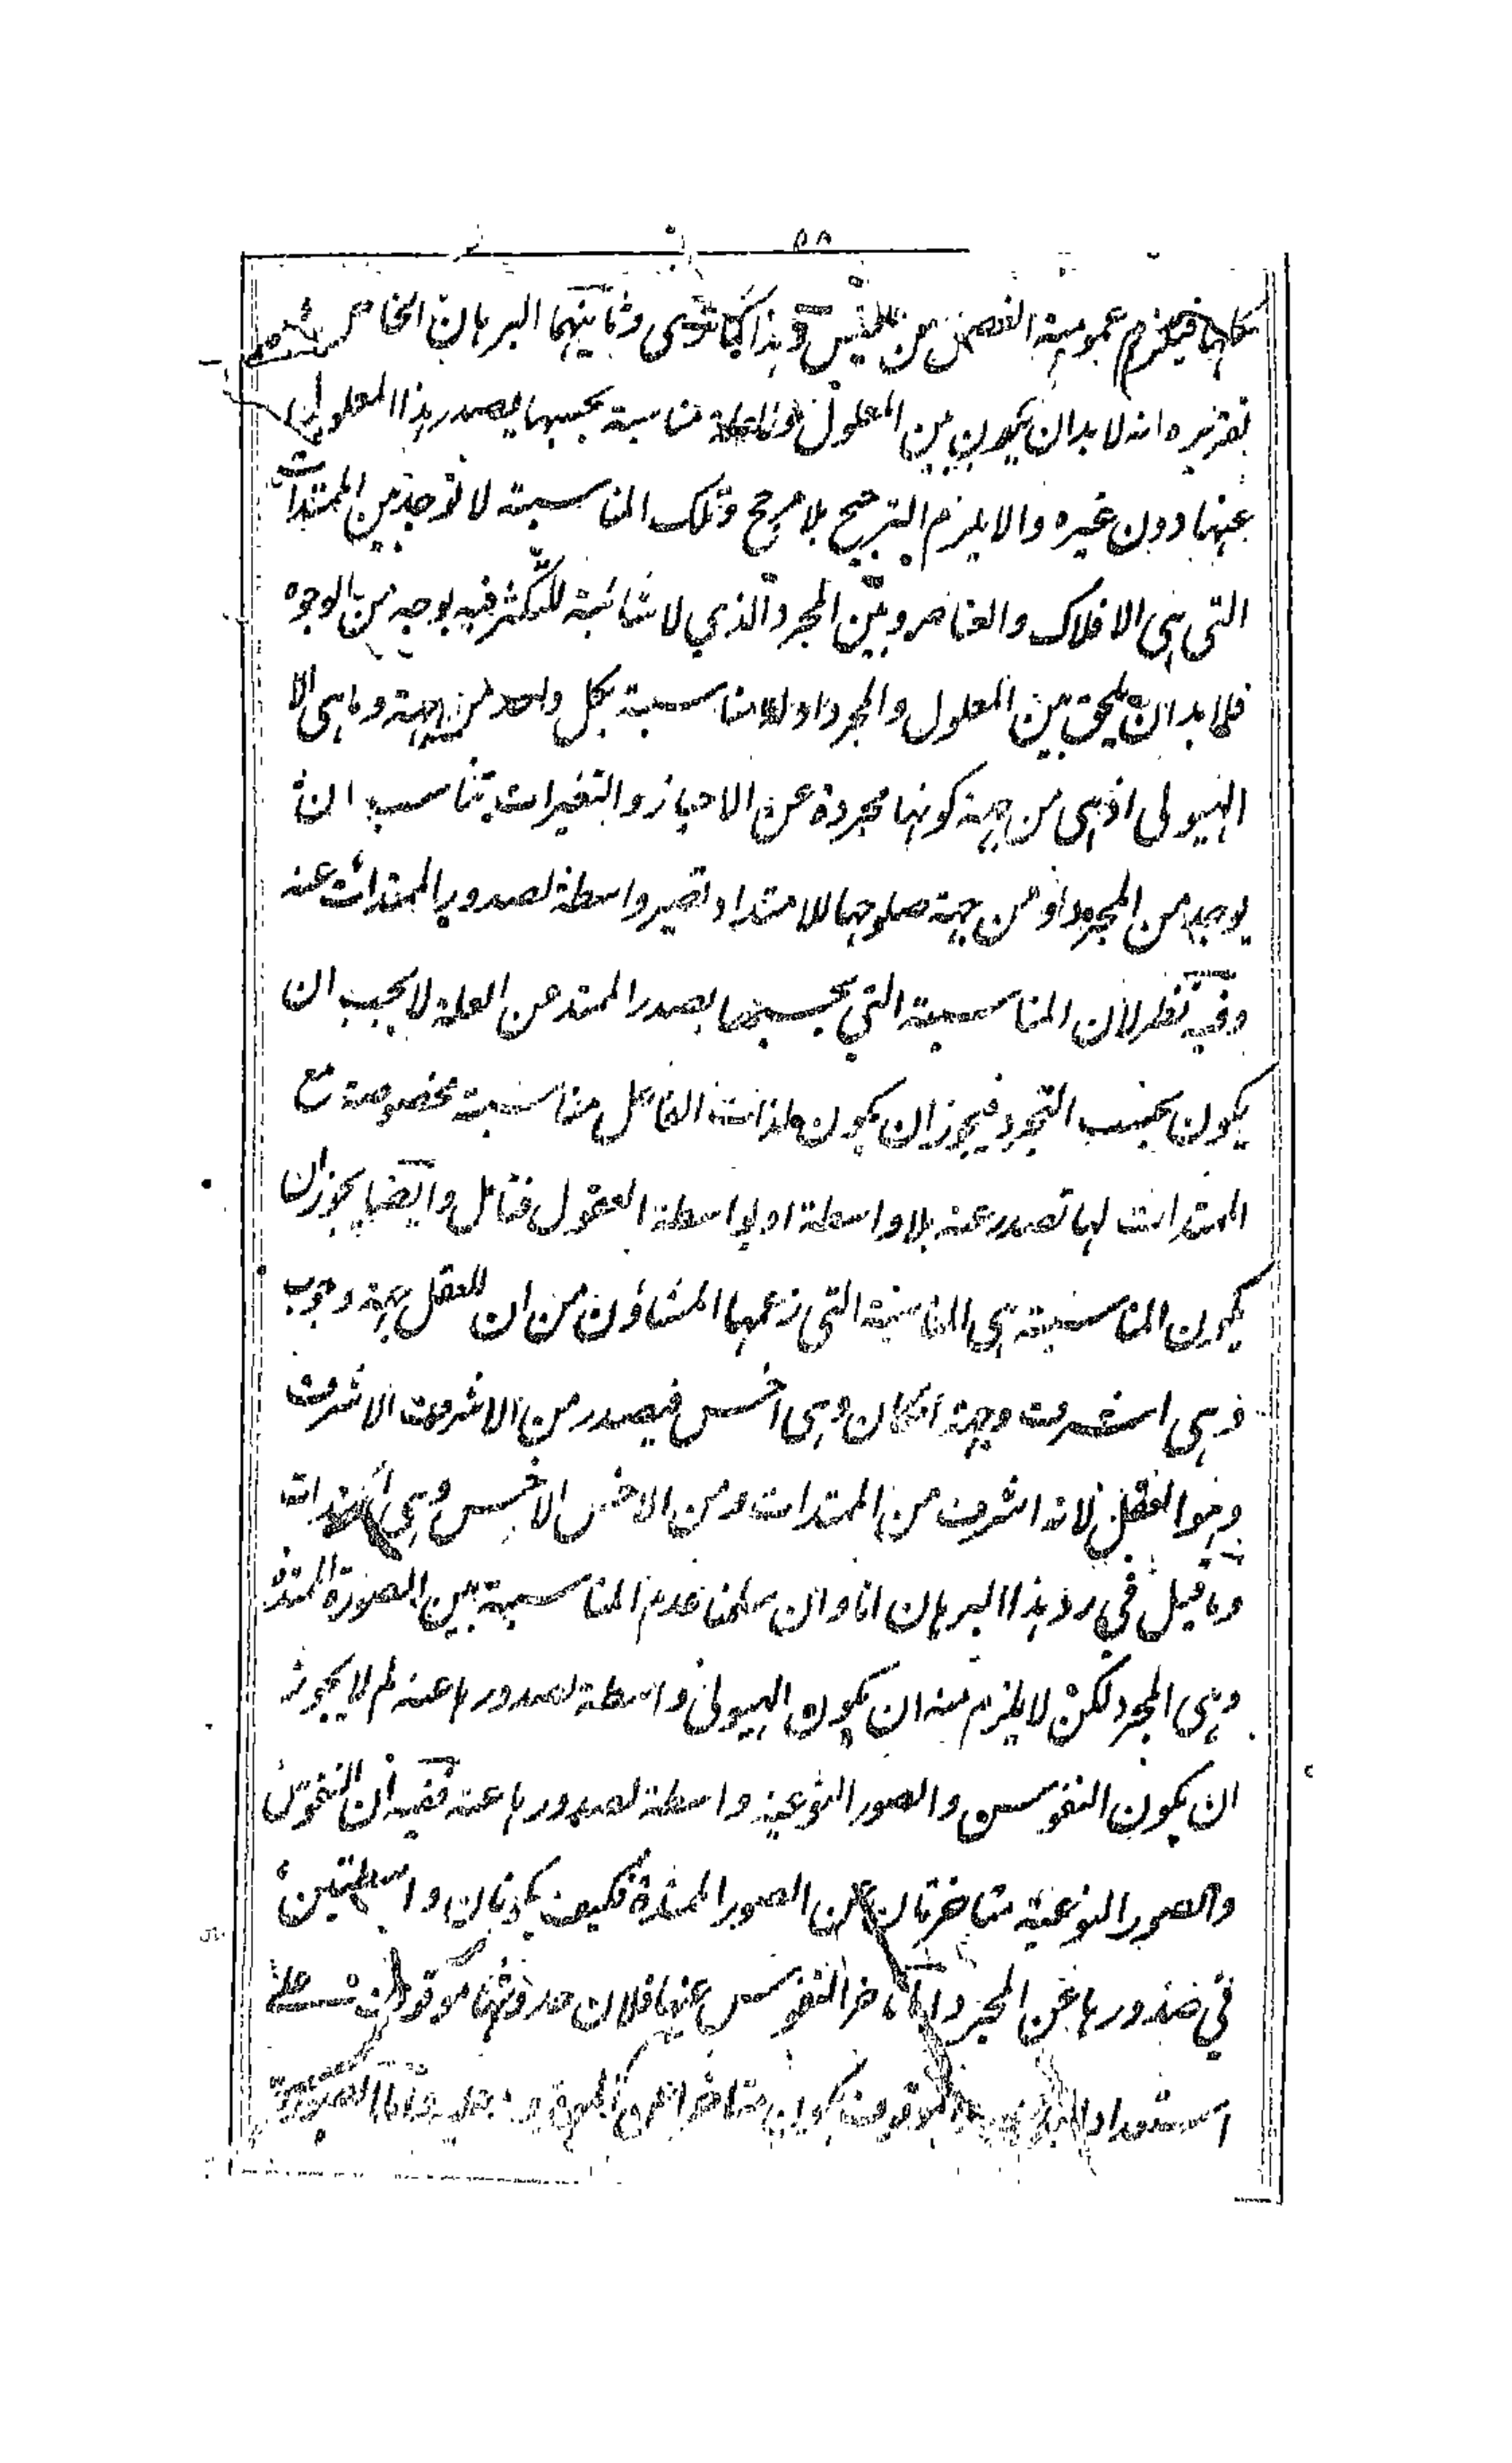 ٥٨
كلها فيلزم عمومية الفصل من الجنس وهذا كما ترى وثانيهما البرهان الخاص
تقريره انه لا بد ان يكون بين المعلول والعلة مناسبة بحسبها يصدر هذا المعلول
عنها دون غيره والا يلزم الترجيح بلا مرجح وتلك المناسبة لا توجد بين الممتدات
التي هي الافلاك والعناصر وبين المجرد الذي لا شائبة للتكثر فيه بوجه من الوجوه
فلا بد ان يلحق بين المعلول والمجرد اولا مناسبة بكل واحد من جهة وما هي الا
الهيولى اذ هي من جهة كونها مجردة عن الاحياز والتغيرات تناسب ان
يوجد من المجرد او من جهة صلوحها للامتداد تصير واسطة لصدور الممتدات عنه
وفيه نظر لان المناسبة التي بحسبها يصدر الممتد عن العلة لا يجب ان
يكون بحسب التجرد فيجوز ان يكون لذات الفاعل مناسبة مخصوصة مع
الممتدات لها تصدر عنه بلا واسطة او بواسطة العقول فتامل وايضا يجوز ان
يكون المناسبة هي المناسبة التي زعمها المشاؤن من ان للعقل جهة وجوب
وهي اشرف وجهة امكان وهي اخس فيصدر من الاشرف الاشرف
وهو العقل لانه اشرف من الممتدات ومن الاخس الاخس وهي الممتدات
وما قيل في رد هذا البرهان انا وان سلمنا عدم المناسبة بين الصورة الممتدة
وهي المجرد لكن لا يلزم منه ان يكون الهيولى واسطة لصدورها عنه لم لا يجوز
ان يكون النفوس والصور النوعية واسطة لصدورها عنه ففيه ان النفوس
والصور النوعية متاخرتان عن الصور الممتدة فكيف يكونان واسطتين
في صدورها عن المجرد اما تاخر النفوس عنها فلان حدوثها موقوف على
استعداد البدن والموقوف يكون متاخرا عن الموقوف عليه واما الصورة